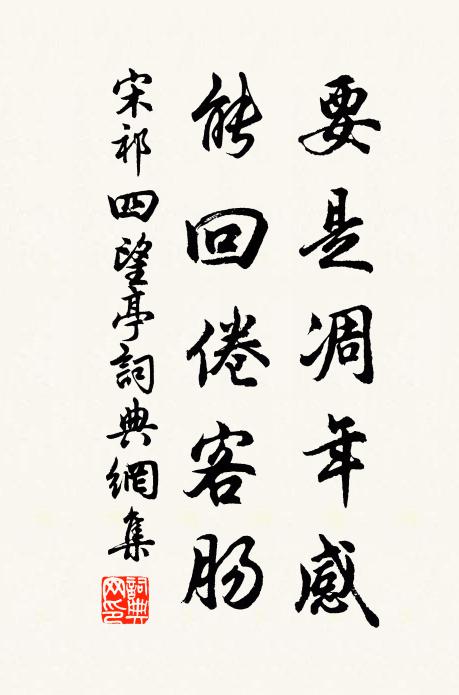 要是凋年感
能回倦客肠
宋祁四望亭詞典網集
詞典网印